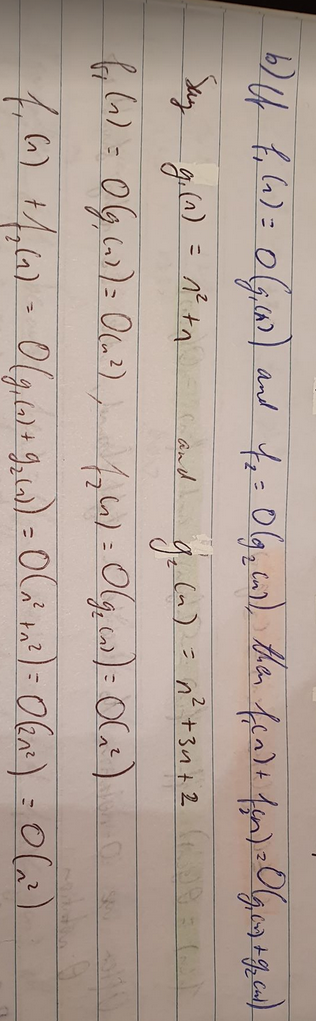 b) If f₁(n) = O(g₁(n)) and f₂ = O(g₂(n)), then f₁(n) + f₂(n) = O(g₁(n) + g₂(n))
Say g₁(n) = n² + n and g₂(n) = n² + 3n + 2
f₁(n) = O(g₁(n)) = O(n²), f₂(n) = O(g₂(n)) = O(n²)
f₁(n) + f₂(n) = O(g₁(n) + g₂(n)) = O(n² + n²) = O(2n²) = O(n²)